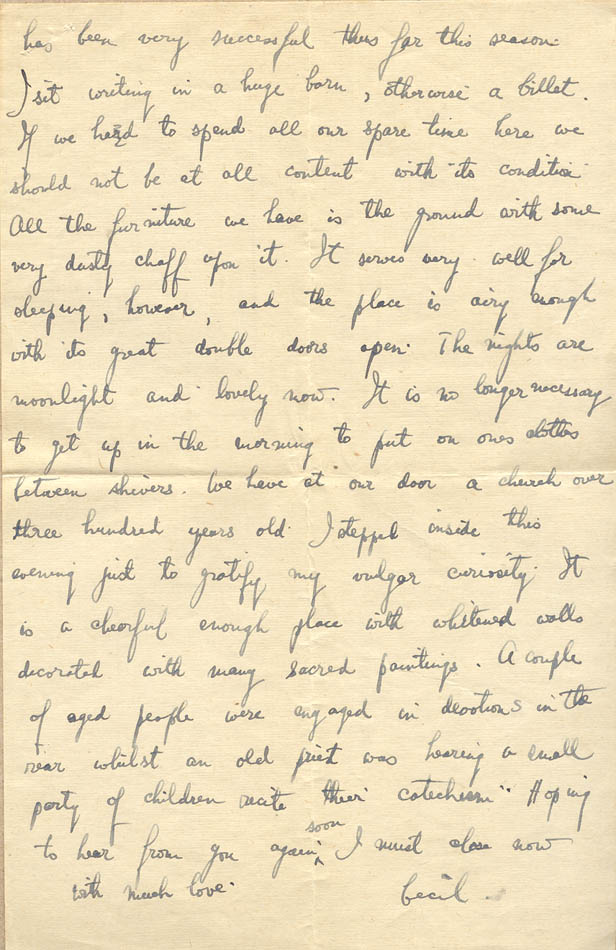 has been very successful thus far this season.
I sit writing in a huge barn, otherwise a billet.
If we had to spend all our spare time here we
should not be at all content with its condition
All the furniture we have is the ground with some
very dusty chaff upon it. It serves very well for
sleeping, however, and the place is airy enough
with its great double doors open. The nights are
moonlight and lovely now. It is no longer necessary
to get up in the morning to put on ones clothes
between shivers. We have at our door a church over
three hundred years old. I stepped inside this
evening just to gratify my vulgar curiosity. It
is a cheerful enough place with whitened walls
decorated with many sacred paintings. A couple
of aged people were engaged in devotions in the
rear whilst an old priest was hearing a small
party of children recite their "catechism" Hoping
to hear from you again soon I must close now
with much love. Cecil.